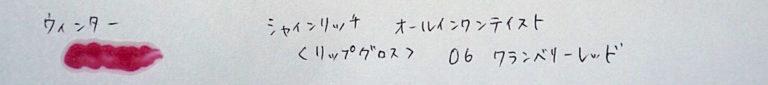 ウィンター シャインリッチ オールインワンテイスト
<リップグロス> 06 クランベリーレッド